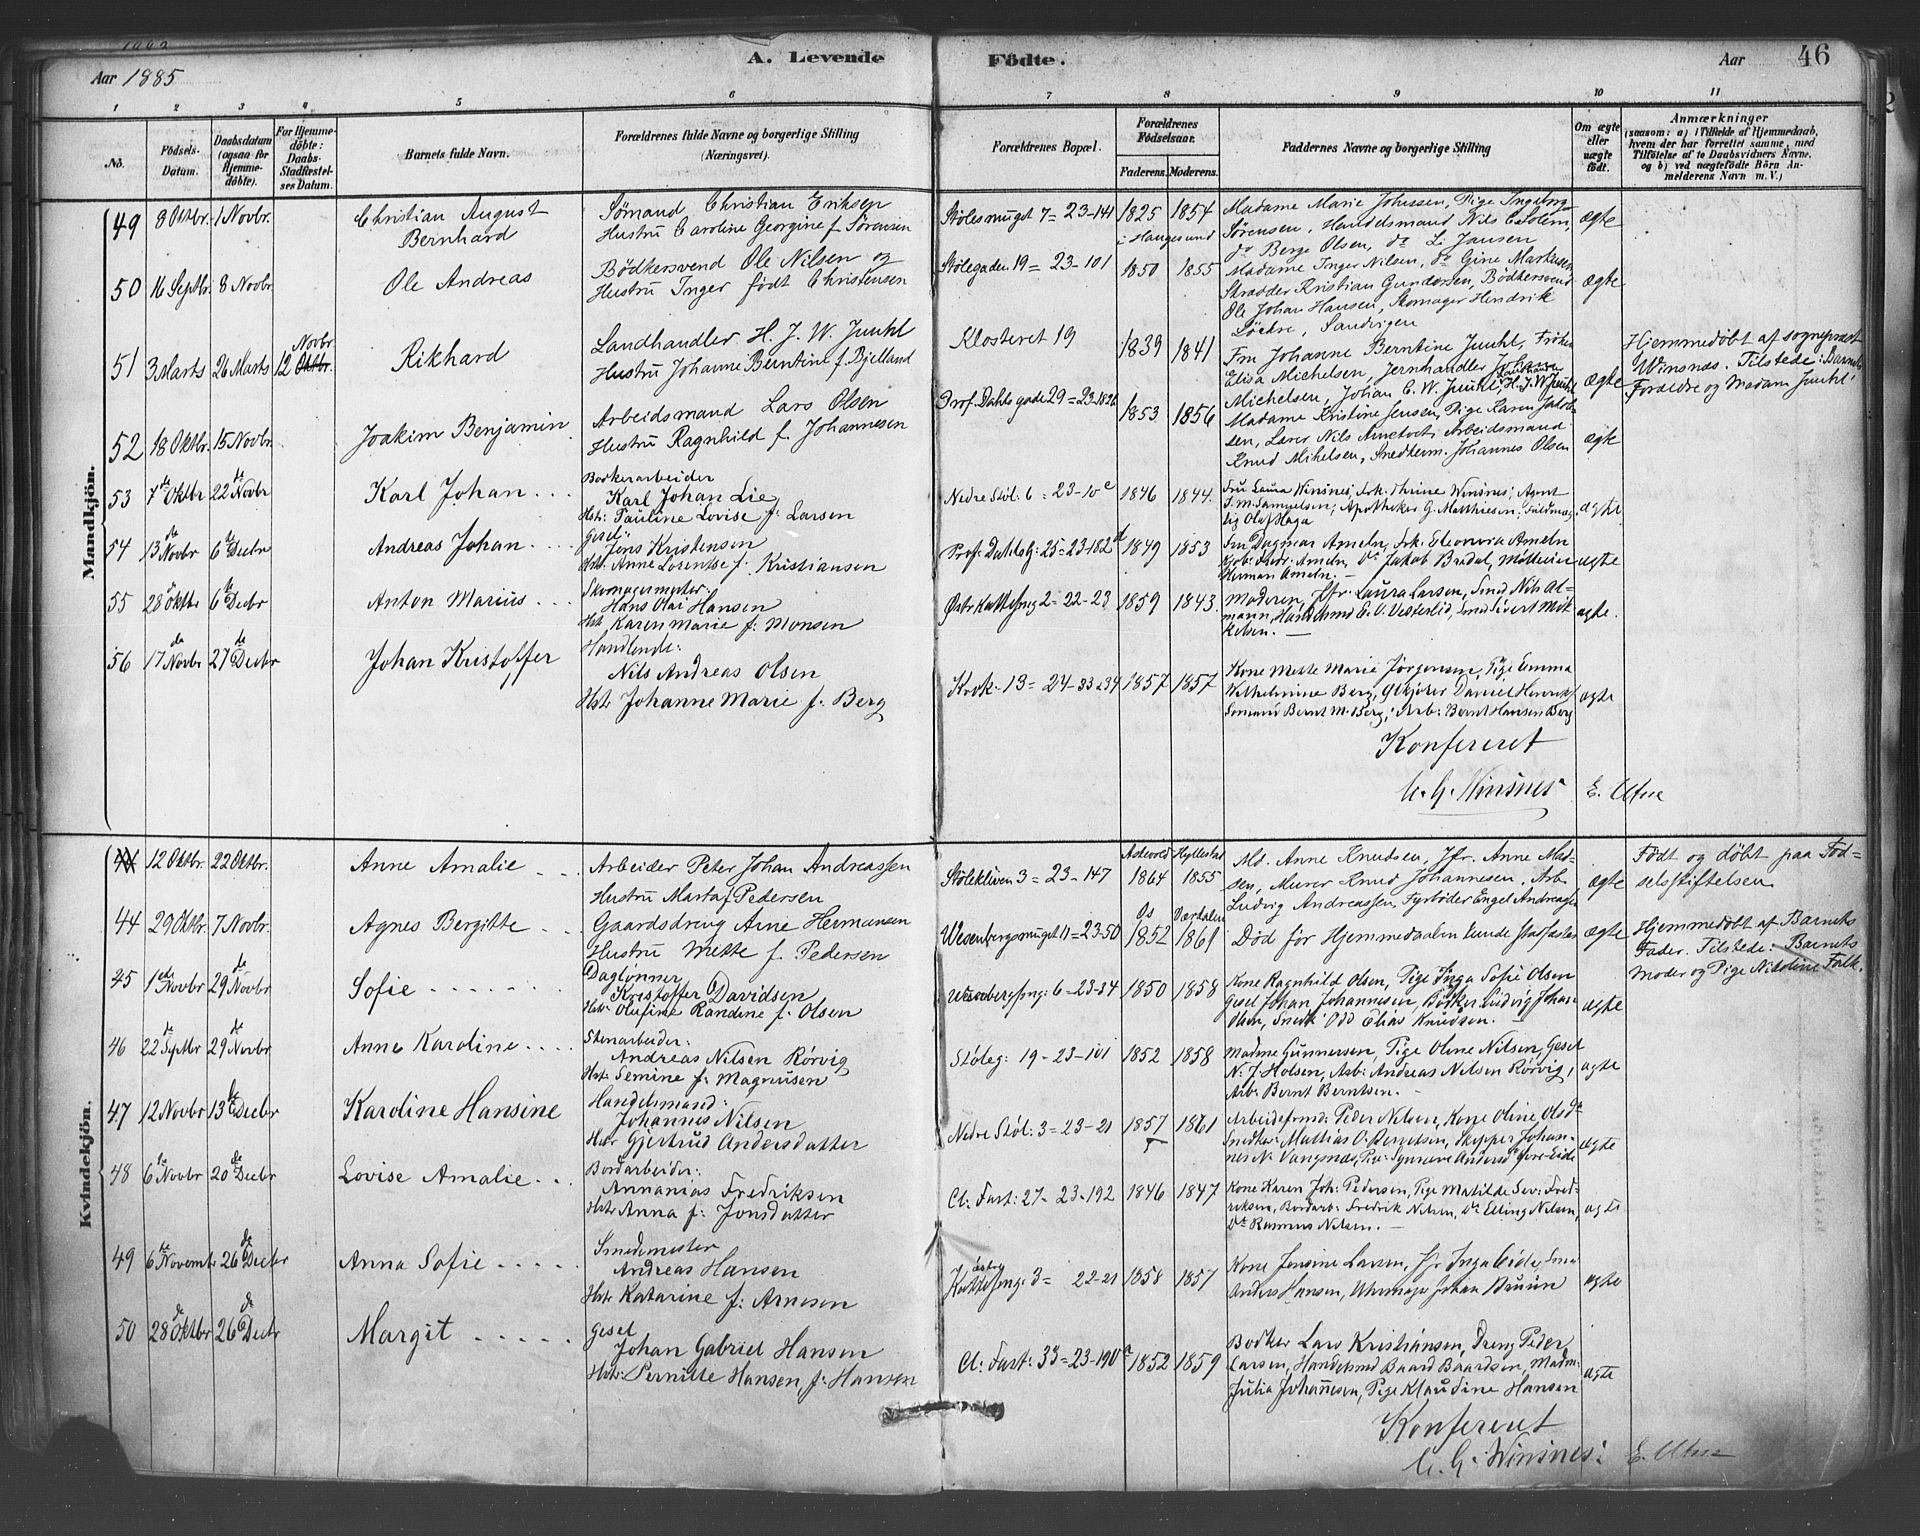 A. Levende Födte.
Aar 1885
Aar 46
1 2 3 4 5 6 7 8 9 10 11
No.
Fødsels-Datum.
Daabsdatum (ogsaa for Hjemme-døbte).
For Hjemme-døbte: Daabs-Stadfæstel-ses Datum.
Barnets fulde Navn.
Forældrenes fulde Navne og borgerlige Stilling (Næringsvei).
Forældrenes Bopæl.
Forældrenes Fødselsaar.
Faderens. Moderens.
Faddernes Navne og borgerlige Stilling
Om ægte eller uægte født.
Anmærkninger
(saasom: a) i Tilfælde af Hjemmedaab, hvem der har forrettet samme, med Tilføielse af to Daabsvidners Navne, og b) ved uægtefödte Börn An-melderens Navn m. V.)
Mandkjön.
49 8 Oktbr. 1 Novbr. Christian August Bernhard
Sømand Christian Eriksen
Hustru Caroline Georgine f. Sørensen
Stølesmuget 7 = 23-141 1825 1854
i Haugesund
Madame Marie Johnssen, Pige Ingeborg
Sørensen, Handelsmand Nils
do Berge Olsen, do L. Jansen
ægte
50 16 Septbr. 8 Novbr. Ole Andreas
Bødkersvend Ole Nilsen og
Hustru Inger født Christensen
Stølegaden 19 = 23-101 1850 1855
Madame Inger Nilsen, do Gine Markusen
Skrædder Kristian Gundersen, Bødkersvend
Ole Johan Hansen, Skomager Hendrik
Sandvigen
ægte
51 3 Marts 26 Marts 12 Novbr Oktbr. Rikhard
Landhandler H. J. W. Juuhl
Hustru Johanne Berntine f. Bjelland
Klosteret 19 1839 1841
Fru Johanne Berntine Juuhl, Frøken
Elisa Michelsen, Jernhandler Johan
Michelsen, Johan C. W. Juuhl, H. J. W. Juuhl
ægte
Hjemmedøbt af sogneprest
Winsnes. Tilstede: Barnets
Forældre og Madam Juuhl
52 18 Oktbr. 15 Novbr. Joakim Benjamin
Arbeidsmand Lars Olsen
Hustru Ragnhild f. Johannesen
Prof. Dahls gade 29 = 23-182b 1853 1856
Madame Kristine Jensen, Pige Karen Jakob-
sen, Lærer Nils Arbeidsmand
Knud Mikelsen, Snedkerm. Johannes Olsen
ægte
53 7de Oktbr 22de Novbr Karl Johan
Bødkerarbeider
Karl Johan Lie
Hstr: Pauline Lovise f. Larsen
Nedre Støl: 6 = 23-10e 1846 1844.
Fru Laura Winsnes, Frk. Thrine Winsnes; Agent
J. M. Samuelsen; Apotheker G. Matthiesen; Fuldmæg-
tig Olaf Haga
ægte.
54 13de Novbr 6te Decbr Andreas Johan
Gesel:
Jens Kristensen
Hstr. Anne Lorentse f. Kristiansen
Prof. Dahlsg: 25 = 23-182d 1849 1853
Fru Dagmar Ameln, Frk. Eleonora Ameln
Ameln, do Jakob Bredal,
Herman Ameln. —
ægte
55 28 Oktbr 6te Decbr Anton Marius
Skomagermester:
Hans Olai Hansen
Hst: Karen Marie f. Monsen
Østr Kattesmg 2 - 22-23 1859 1843.
Moderen, Jfr. Laura Larsen, Smed Nils Al-
mann, Handelsmd E. O. Vesterlid, Smed Sivert Mik-
kelsen. —
ægte.
56 17de Novbr 27de Decbr Johan Kristoffer
Handlende:
Nils Andreas Olsen
Hstr Johanne Marie f. Berg
Krok. 13 = 24-33 & 34 1857 1857
Kone Mette Marie Jörgensen, Pige Emma
Wilhelmine Berg, Daniel
Sømand Bernt M. Berg; Arb: Bernt Hansen Berg
ægte
Konfereret
C. G. Winsnes. E. Utne
Kvindekjön.
12 Oktbr. 22 Oktbr. Anne Amalie
Arbeider Peter Johan Andreassen
Hustru Marta f Pedersen
Stølekleven 3 = 23-147 Askevold 1864 Hyllestad 1855
Md. Anne Knudsen, Jfr. Anne Mad-
sen, Murer Knud Johannesen, Arb.
Ludvig Andreassen, Fyrbøder Engel Andreasen
ægte
Født og døbt paa Fød-
selsstiftelsen
44 29 Oktbr. 7 Novbr. Agnes Bergitte
Gaardsdreng Arne Hermansen
Hustru Mette f. Pedersen
Wesenbergsmuget 11 = 23-50 Os 1852 Værdalen 1861
Død før Hjemmedaaben kunde stadfæstes
ægte
Hjemmedøbt af Barnets
Fader. Tilstede: Barnets
Moder og Pige Nikoline Falk.
45 1ste Novbr 29de Novbr Sofie
Daglønner
Kristoffer Davidsen
Hstr. Olufine Randine f. Olsen
Wesenbergsmg: 6 - 23-34 1850 1858
Kone Ragnhild Olsen, Pige Inga Sofie Olsen
Gesel Johan Johannesen, Bødker Ludvig Johan
Olsen, Snedk. Odd Elias Knudsen. —
ægte
46 22de Septbr 29de Novbr Anne Karoline
Stenarbeider:
Andreas Nilsen Rörvig
Hstr. Semine f: Magnusen
Støleg: 19 - 23-101 1852 1858
Madme Gunnersen, Pige Oline Nilsen, Gesel
N. J. Holsen, Arb: Andreas Nilsen Rörvig,
Arb: Bernt Berntsen. —
ægte
47 12 Novbr 13de Decbr Karoline Hansine
Handelsmand:
Johannes Nilsen
Hstr Gjertrud Andersdatter
Nedre Støl: 3 - 23-21 1857 1861
Arbeidsfmd: Peder Nilsen, Kone Oline Olsdtr
Snedker: Mathias O. Berntsen, Skipper Johan-
nes N. Vangsnæs, Pige Synneve
ægte
48 6te Novbr 20de Decbr Lovise Amalie
Bordarbeider:
Annanias Fredriksen
Hstr Anna f: Jonsdatter
Cl: Fart: 27 - 23-192 1846 1847
Kone Karen Joh: Pedersen, Pige Matilde Sev: Fred-
riksen, Bordarb: Fredrik Nilsen, do Elling Nilsen,
do Rasmus Nilsen. —
ægte
49 6te Novembr 26de Decbr Anna Sofie
Smedemester
Andreas Hansen
Hstr Katarine f: Arnesen
Østre Kattesmg: 3 = 22-21 1858 1857
Kone Jensine Larsen, Jfr Inga Eide, Smed
Anders Hansen, Uhrmager Johan Bruun
ægte
50 28de Oktbr 26de Decbr Margit
Gesel
Johan Gabriel Hansen
Hstr: Pernille Hansen, f: Hansen
Cl: Fart: 33 = 23-190a 1852 1859
Bødker Lars Kristiansen, Dreng Peder
Larsen, Handelsmd Baard Baardsen, Madm:
Julia Johannesen, Pige Klaudine Hansen
ægte
Konfereret
C. G. Winsnes: E. Utne